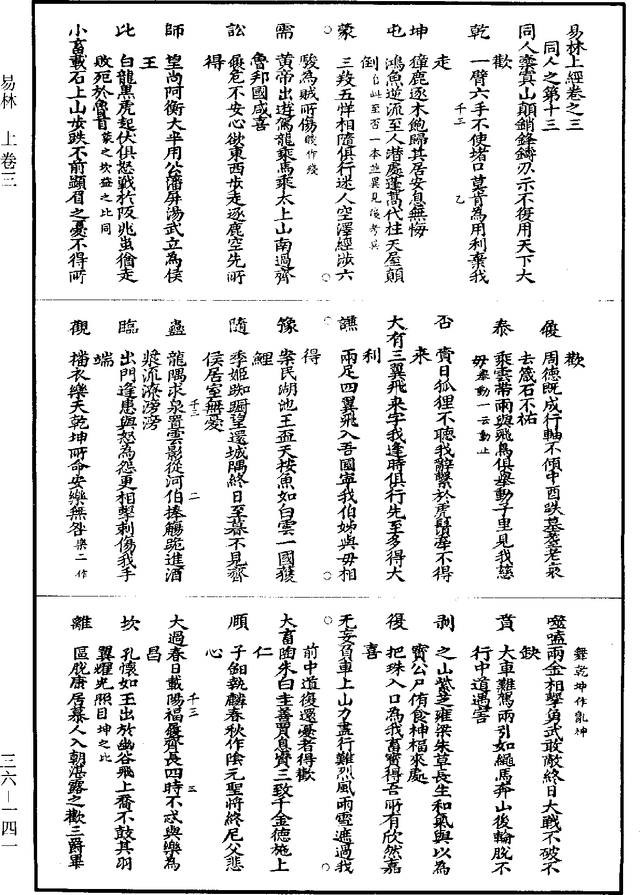 易林上經卷之三
同人之第十三
同人櫜戢山顛銷鋒鑄刃示不復用天下大
歡
乾 一臂六手不使堵口莫肯為用利棄我
走
坤 獐鹿逐木飽歸其居安息無悔
屯 鴻魚逆流至人潛處蓬蒿代柱天屋顛
倒
蒙 三羖五牂相隨俱行迷人空澤經涉六
駁為賊所傷
需 黃帝出遊駕龍乘馬乘太上山南過齊
魯邦國咸喜
訟 履危不安心欲東西步走逐鹿空先所
得
師 望尚阿衡大半用公藩屏湯武立為侯
王
比 白龍黑虎起伏俱怒戰於阪兆蚩猶走
敗死於魯首
小畜載石上山步跌不前顰眉之憂不得所
歡
履 周德既成行軸不傾申酉跌暮耄老衰
去箴石不祐
泰 乘雲帶雨與飛鳥俱舉動千里見我慈
母
否 賁日狐狸不聽我辭繫於虎鬚牽不得
來
大有三翼飛來字我逢時俱行先至多得大
利
謙 兩足四翼飛入吾國寧我伯姊與母相
得
豫 按民湖池玉盃天按魚如白雲一國獲
鯉
隨 季姬踟躕望還城隅終日至暮不見齊
侯居室無憂
蠱 龍隅求泉置雲影從河伯捧觴跪進酒
漿流潦滂滂
臨 出門逢患與怒為怨更相擊刺傷我手
端
觀 播衣樂天乾坤所命安樂無咎
舞乾坤作亂神
噬嗑兩金相擊勇武敢敵終日大戰不破不
缺
賁 大車難駕兩引如繩馬奔山後輪脫不
行中道遇害
剝 之山紫芝雍梁朱草長生和氣與以為
寶公尸侑食神福來處
復 把珠入口為我畜寶得吾所有欣然嘉
喜
无妄負車上山力盡行難烈風雨雪遮遏我
前中道復還憂者得歡
大畜陶朱白圭善賈息資三致千金德施上
仁
頤 子鉏執麟春秋作陰元聖將終尼父悲
心
大過春日載陽福履齊長四時不忒與樂為
昌
坎 孔懷如玉出於幽谷飛上喬木鼓其羽
翼耀光照日
離 區脫康居慕人入朝湛露之歡三爵畢
易林 上卷三
三六－一四一